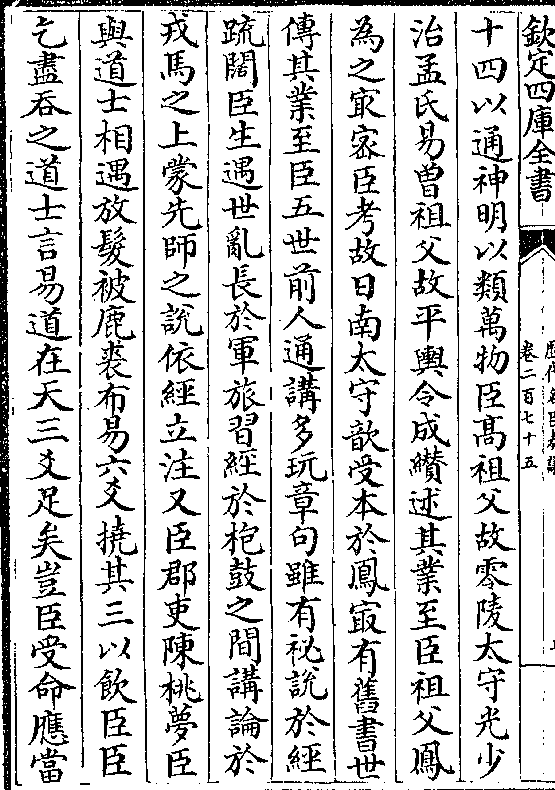 欽定四庫全書
卷二百七十五
十四以通神明以類萬物臣髙祖父故零陵太守光少
治孟氏易曽祖父故平輿令成纉述其業至臣祖父鳳
為之㝡宻臣考故日南太守歆受本於鳳㝡有舊書世
傳其業至臣五世前人通講多玩章句雖有祕說於經
疏闊臣生遇世亂長於軍旅習經於枹鼓之間講論於
戎馬之上蒙先師之說依經立注又臣郡吏陳桃夢臣
與道士相遇放髮被鹿裘布易六爻撓其三以飲臣臣
乞盡吞之道士言易道在天三爻足矣豈臣受命應當